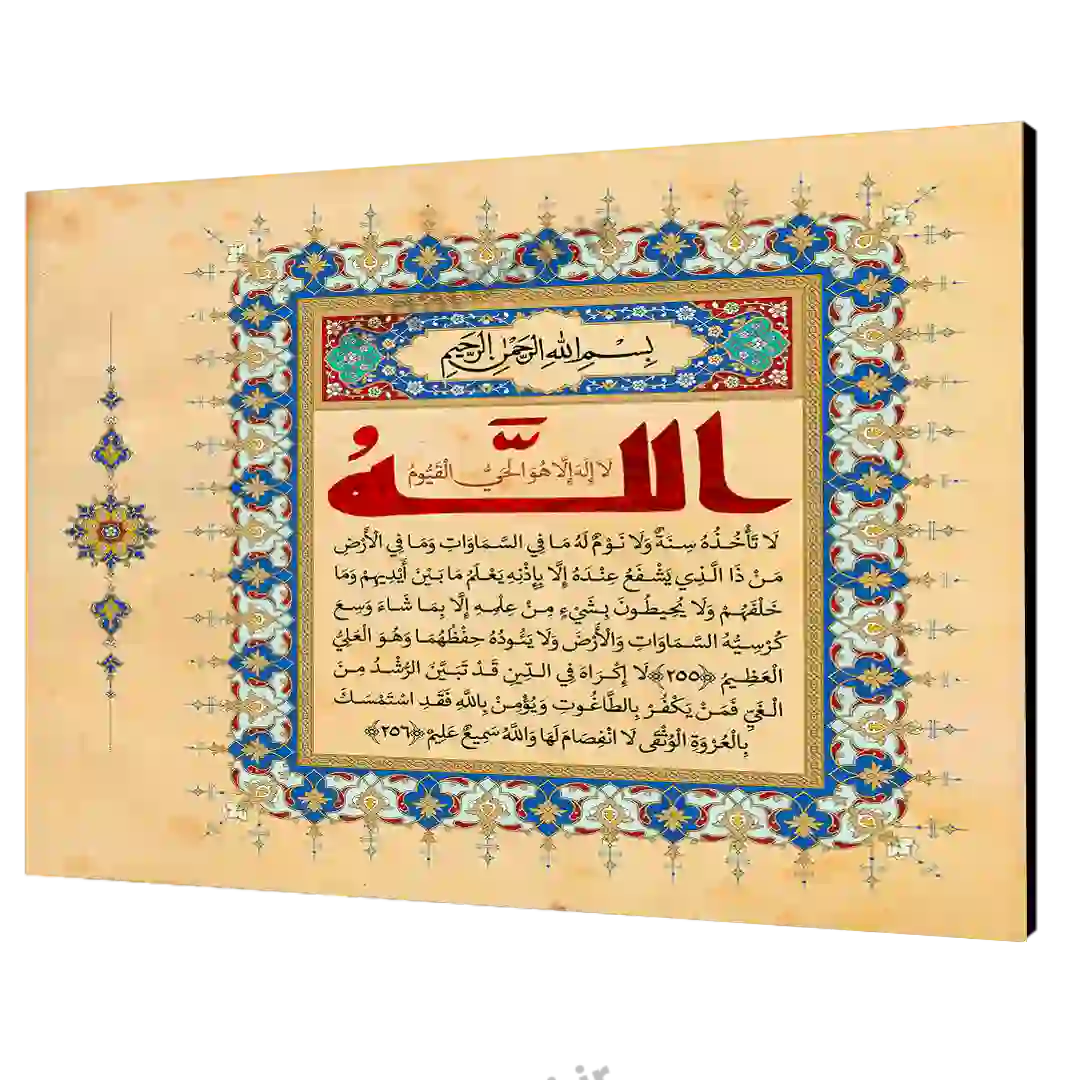 بِسْمِ اللهِ الرَّحْمٰنِ الرَّحِيمِ
اللَّهُ
لَا إِلَهَ إِلَّا هُوَ الْحَيُّ الْقَيُّومُ
لَا تَأْخُذُهُ سِنَةٌ وَلَا نَوْمٌ لَهُ مَا فِي السَّمَاوَاتِ وَمَا فِي الْأَرْضِ
مَنْ ذَا الَّذِي يَشْفَعُ عِنْدَهُ إِلَّا بِإِذْنِهِ يَعْلَمُ مَا بَيْنَ أَيْدِيهِمْ وَمَا
خَلْفَهُمْ وَلَا يُحِيطُونَ بِشَيْءٍ مِنْ عِلْمِهِ إِلَّا بِمَا شَاءَ وَسِعَ
كُرْسِيُّهُ السَّمَاوَاتِ وَالْأَرْضَ وَلَا يَئُودُهُ حِفْظُهُمَا وَهُوَ الْعَلِيُّ
الْعَظِيمُ ﴿٢٥٥﴾ لَا إِكْرَاهَ فِي الدِّينِ قَدْ تَبَيَّنَ الرُّشْدُ مِنَ
الْغَيِّ فَمَنْ يَكْفُرْ بِالطَّاغُوتِ وَيُؤْمِنْ بِاللَّهِ فَقَدِ اسْتَمْسَكَ
بِالْعُرْوَةِ الْوُثْقَى لَا انْفِصَامَ لَهَا وَاللَّهُ سَمِيعٌ عَلِيمٌ ﴿٢٥٦﴾